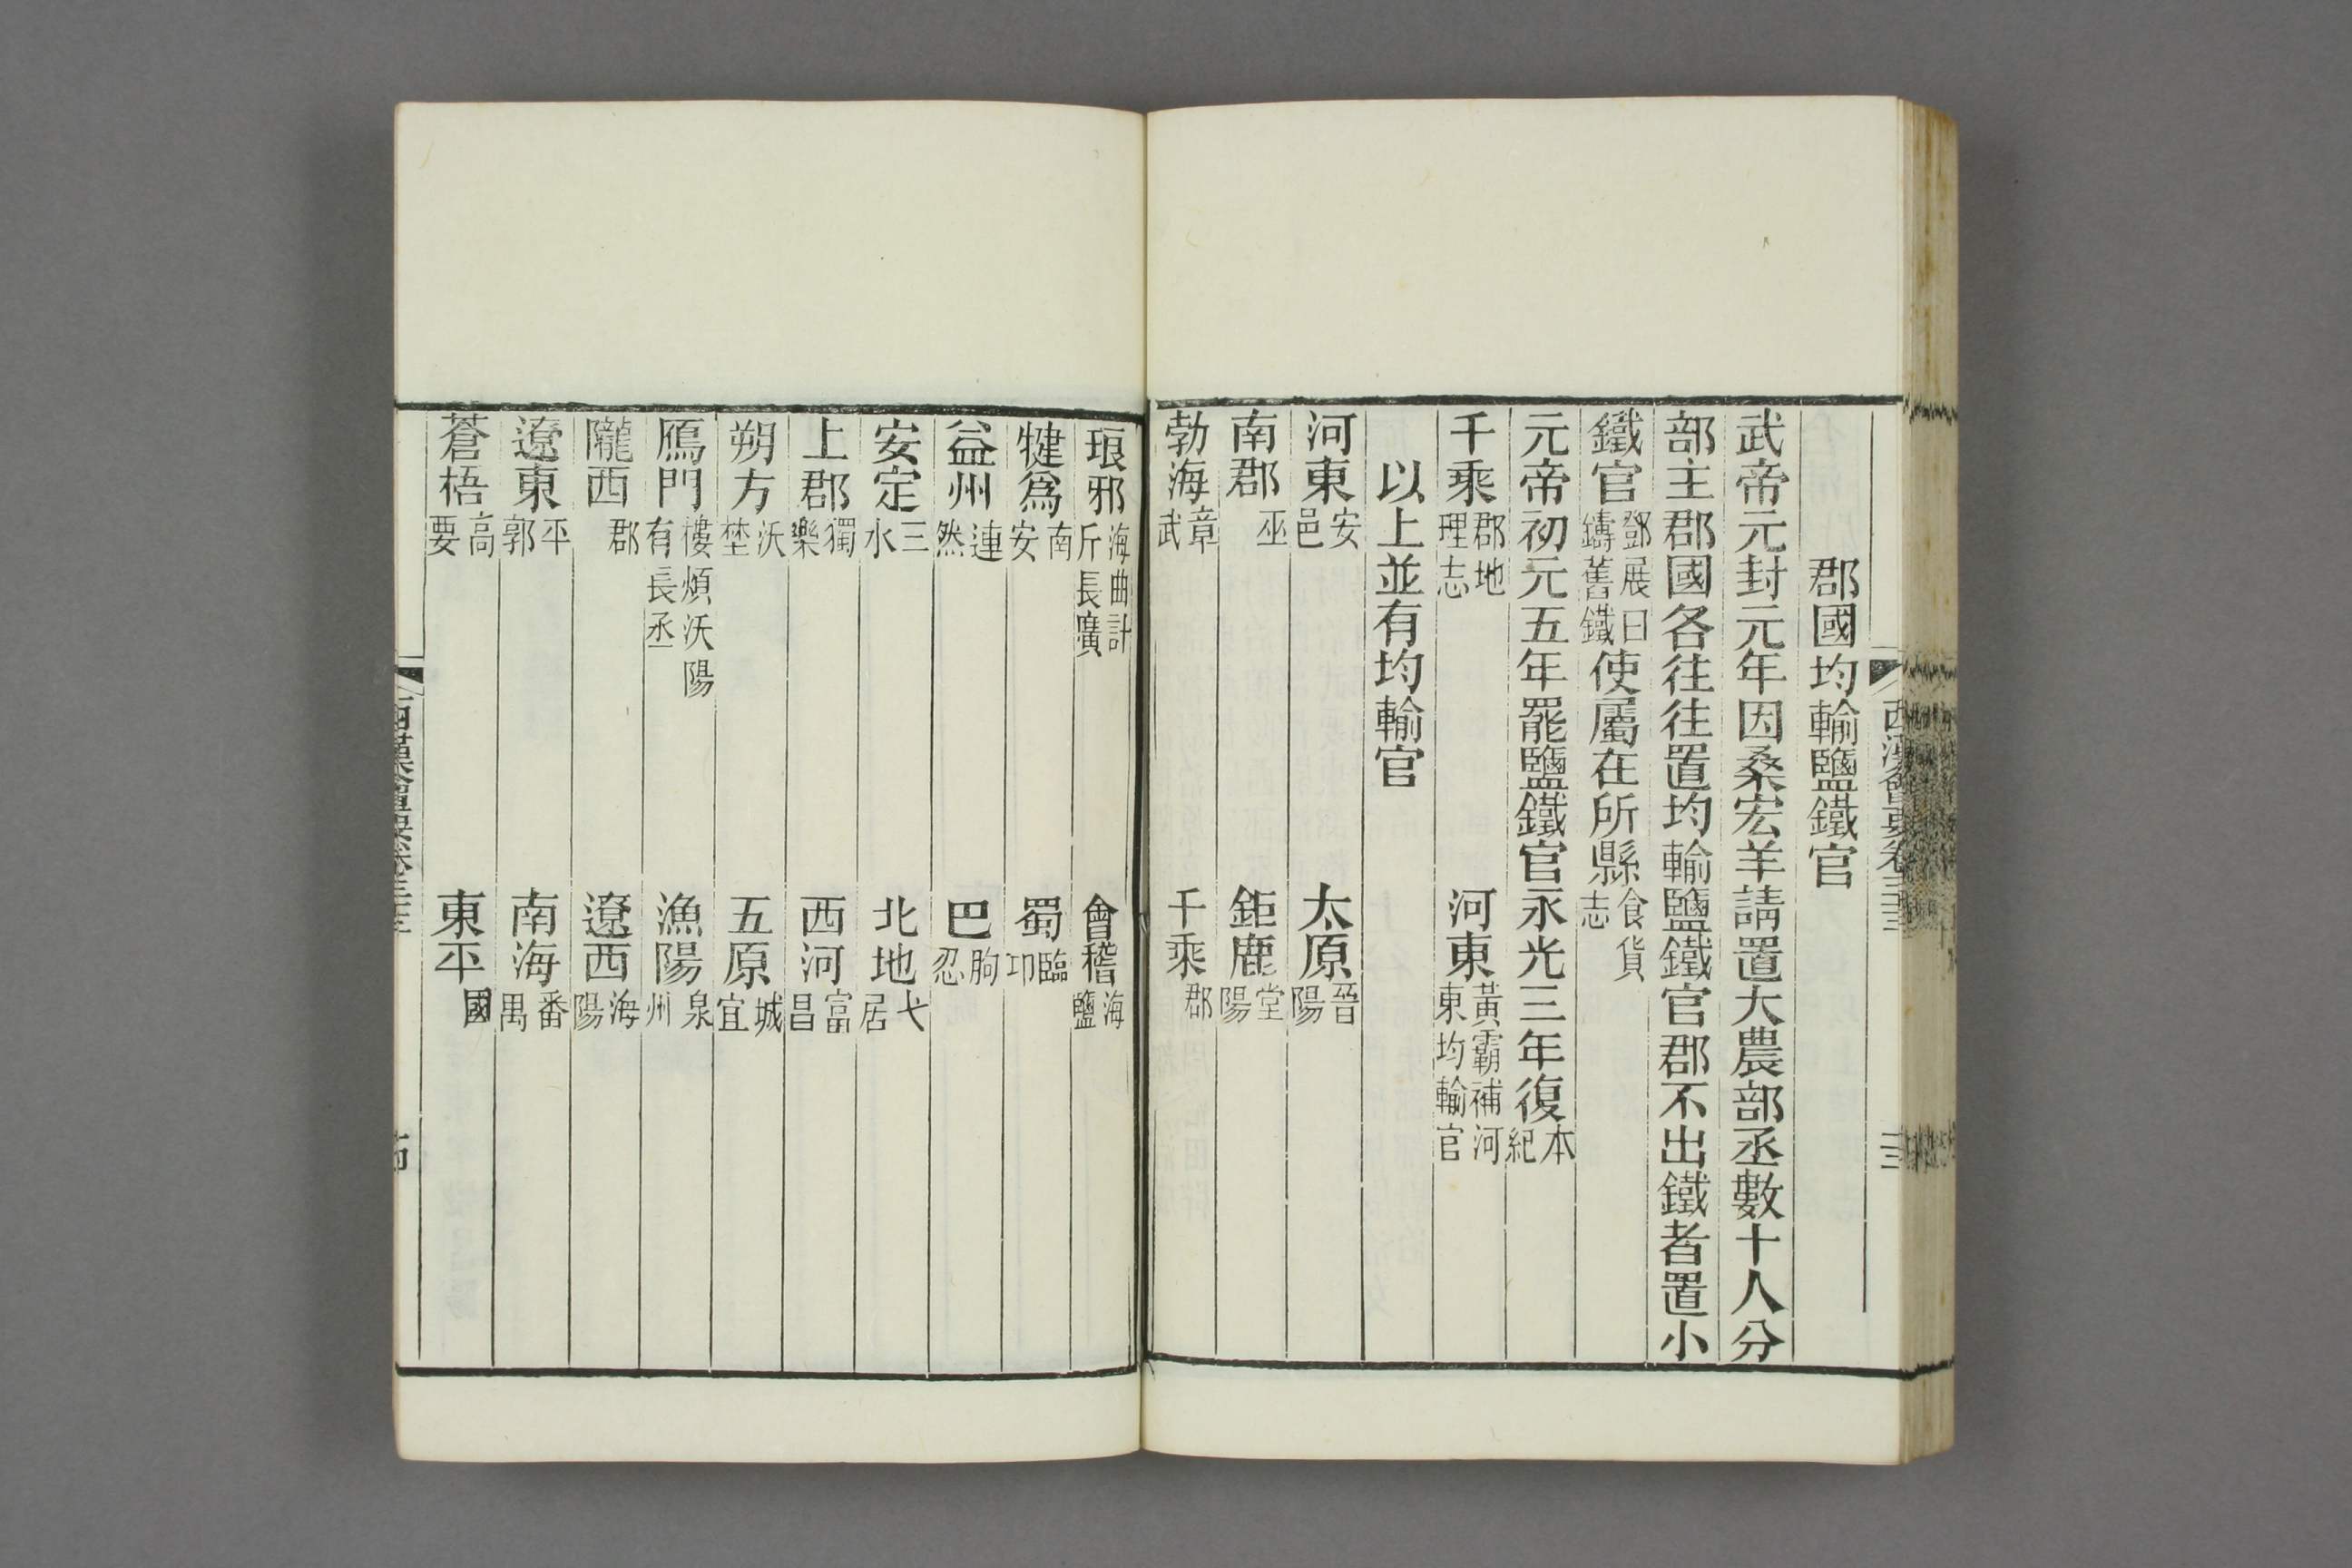 郡國均輸鹽鐵官
武帝元封元年因桑宏羊請置大農部丞數十人分
部主郡國各往往置均輸鹽鐵官郡不出鐵者置小
鐵官鄧展曰鑄舊鐵使屬在所縣食貨志
元帝初元五年罷鹽鐵官永光三年復本紀
千乘郡地理志 河東黃霸補河東均輸官
以上並有均輸官
河東安邑 太原晉陽
南郡巫 鉅鹿堂陽
勃海章武 千乘郡
琅邪海曲計斤長廣 會稽海鹽
犍爲南安 蜀臨卭
益州連然 巴朐忍
安定三水 北地弋居
上郡獨樂 西河富昌
朔方沃壄 五原城宜
鴈門樓煩沃陽有長丞 漁陽泉州
隴西郡 遼西海陽
遼東平郭 南海番禺
蒼梧高要 東平國
西漢會要卷三十三